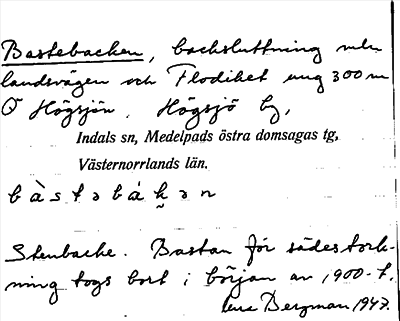 Bastebacken, backsluttning mln
landsvägen och Flodiket ung 300 m
Ö Högsjön. Högsjö by,
Indals sn, Medelpads östra domsagas tg,
Västernorrlands län.
b à s t ə b á k̬ ə n
Stenbacke. Bastan för sädestork-
ning togs bort i början av 1900-t.
Bergman 1947.